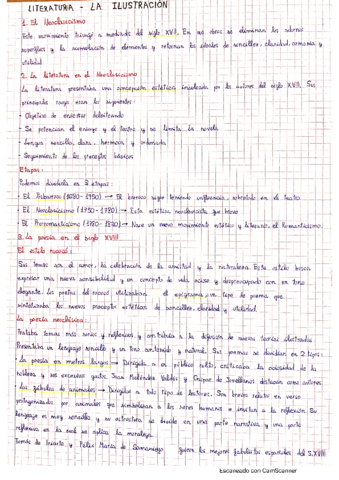 LITERATURA - LA ILUSTRACIÓN
1. El Neoclasicismo
Este movimiento triunfó a mediados del siglo XVIII. En sus obras se eliminan los adornos
superfluos y la acumulación de elementos y retornan los ideales de sencillez, claridad, armonía y
utilidad
2. La literatura en el Neoclasicismo
La literatura presentaba una concepción estética inculcada por los autores del siglo XVIII. Sus
principales rasgos eran los siguientes:
- Objetivo de enseñar deleitando
- Se potencian el ensayo y el teatro y se limita la novela
- Lengua sencilla, clara, hermosa y ordenada
- Seguimiento de los preceptos clásicos
Etapas:
Podemos dividirla en 3 etapas:
- El Posbarroco (1680-1750) → El barroco sigue teniendo influencia, sobretodo en el teatro
- El Neoclasicismo (1750-1780) → Esta estética neoclasicista que breve
- El Prerromanticismo (1780-1830) → Nace un nuevo movimiento estético y literario, el Romanticismo.
3. La poesía en el siglo XVIII
El estilo rococó:
Sus temas son el amor, la celebración de la amistad y la naturaleza. Este estilo busca
expresar una nueva sensibilidad y un concepto de vida ocioso y despreocupado con un tono
elegante. Los poetas del rococó utilizaban el epigrama, un tipo de poema que
sintetizaba los nuevos preceptos estéticos de sencillez, claridad y utilidad.
La poesía neoclásica:
Trataba temas más serios y reflexivos y contribuía a la difusión de nuevas teorías ilustradas
Presentaba un lenguaje sencillo y un tono contenido y natural. Sus poemas se dividían en 2 tipos:
- La poesía en metros largos → Dirigida a un público culto, criticaba la ociosidad de la
nobleza y sus excesivos gastos. Juan Meléndez Valdés y Gaspar de Jovellanos destacan como autores
- Las fábulas de animales → Dirigidas a todo tipo de lectores. Son breves relatos en verso
protagonizados por animales que simbolizan a los seres humanos e invitan a la reflexión. Su
lenguaje es muy sencillo y su estructura se divide en una parte narrativa y una parte
reflexiva en la cual se aplica la moraleja.
Tomás de Iriarte y Félix María de Samaniego fueron los mejores fabulistas españoles del S.XVIII
Escaneado con CamScanner